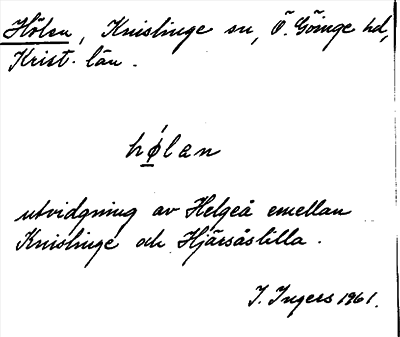 Hölen, Knislinge sn, Ö. Göinge hd,
Krist. län.
hǿ̱lan
utvidgning av Helgeå emellan
Knislinge och Hjärsåslilla.
I. Ingers 1961.